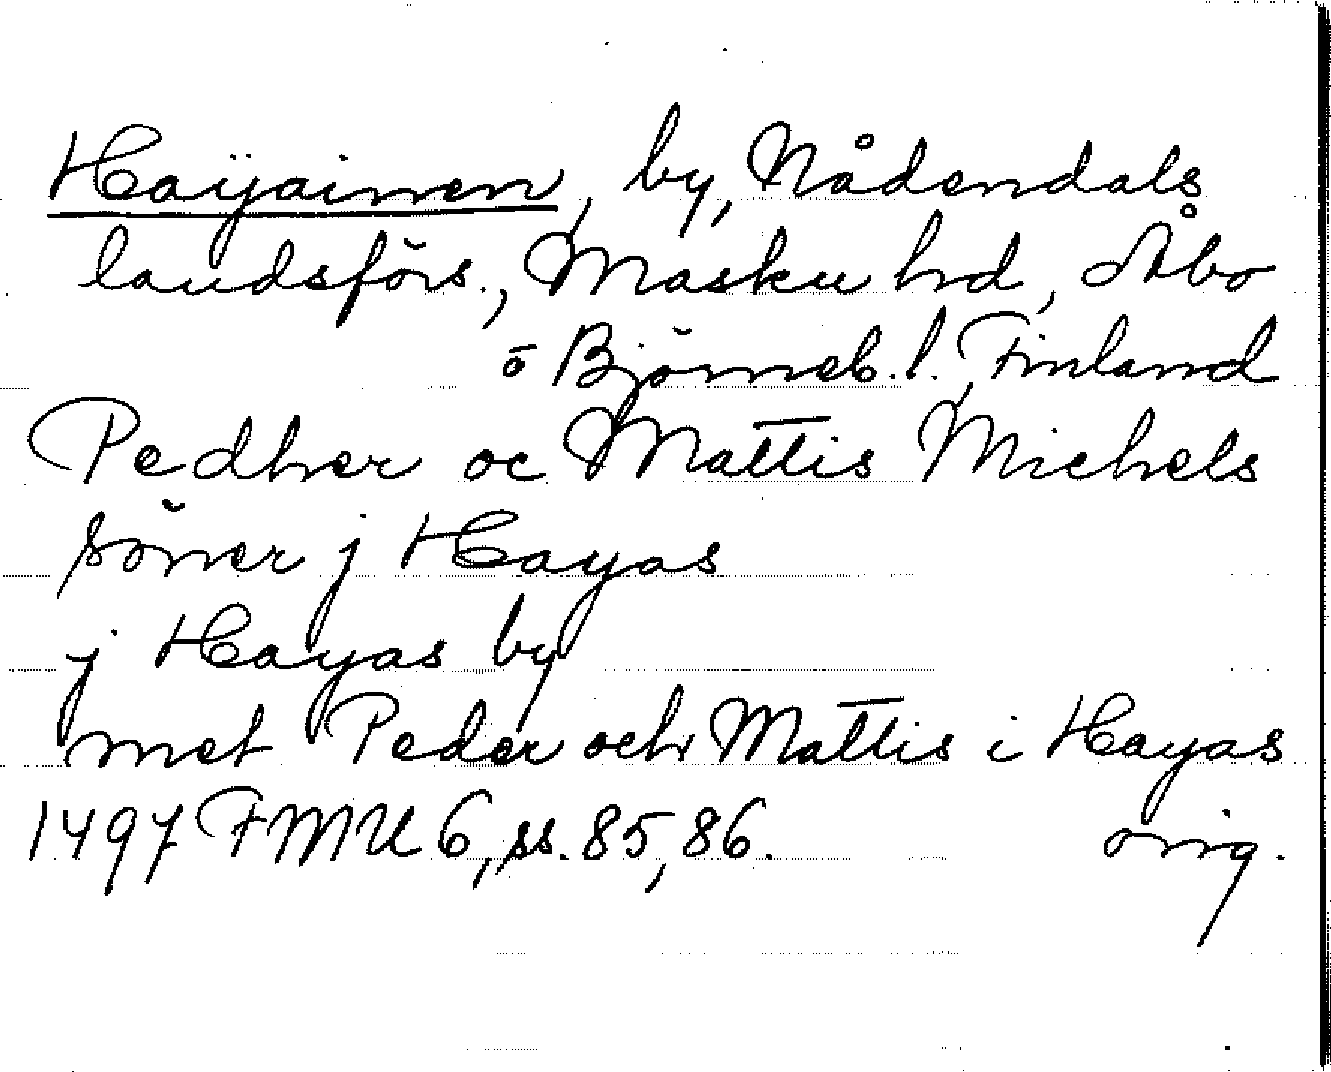 Haÿainen, by, Nådendals
landsförs., Masku hd, Åbo
o Björneb. l. Finland
Pedher oc Mattis Michels
söner j Hayas
j Hayas by
met Peder och Mattis i Hayas
1497 FMU 6, ss. 85, 86. orig.